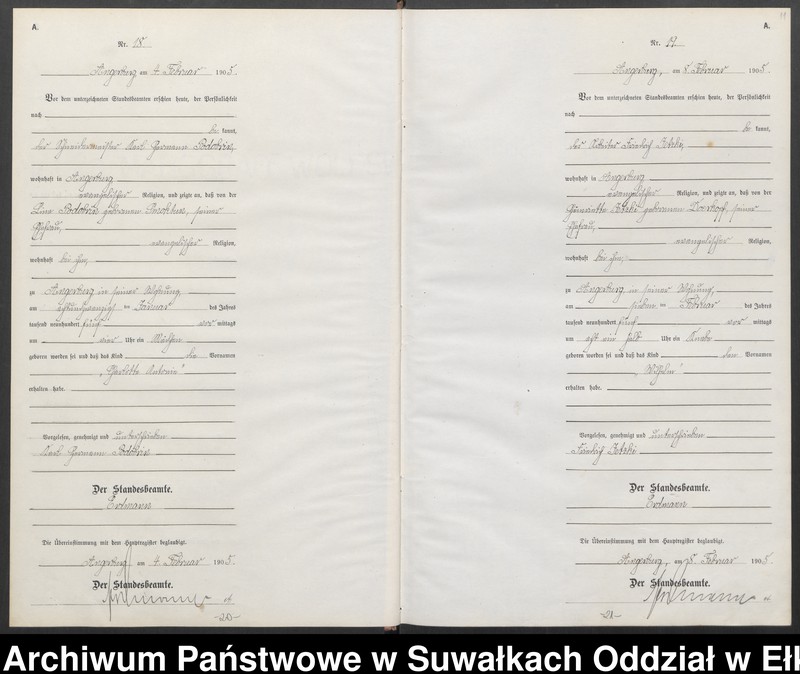 A.
Nr. 18.
Angerburg am 4. Februar 1905.
Vor dem unterzeichneten Standesbeamten erschien heute, der Persönlichkeit
nach
be kannt,
der Schneidermeister Karl Hermann
wohnhaft in Angerburg
evangelischer Religion, und zeigte an, daß von der
geborenen seiner
Ehefrau,
evangelischer Religion,
wohnhaft bei ihm,
zu Angerburg in seiner Wohnung,
am Januar des Jahres
tausend neunhundert fünf vor mittags
um vier Uhr ein Mädchen
geboren worden sei und daß das Kind die Vornamen
„Charlotte Antonie“
erhalten habe.
Vorgelesen, genehmigt und unterschrieben
Karl Hermann
Der Standesbeamte.
Erdmann
Die Übereinstimmung mit dem Hauptregister beglaubigt.
Angerburg am 4. Februar 1905.
Der Standesbeamte.
-20-
A.
Nr. 19.
Angerburg, am 8. Februar 1905.
Vor dem unterzeichneten Standesbeamten erschien heute, der Persönlichkeit
nach
be kannt,
der Arbeiter Friedrich
wohnhaft in Angerburg
evangelischer Religion, und zeigte an, daß von der
Henriette geborenen seiner
Ehefrau,
evangelischer Religion,
wohnhaft bei ihm,
zu Angerburg in seiner Wohnung,
am sieben ten Februar des Jahres
tausend neunhundert fünf vor mittags
um acht ein halb Uhr ein Knabe
geboren worden sei und daß das Kind den Vornamen
„Wilhelm“
erhalten habe.
Vorgelesen, genehmigt und unterschrieben
Friedrich
Der Standesbeamte.
Erdmann
Die Übereinstimmung mit dem Hauptregister beglaubigt.
Angerburg, am 8. Februar 1905.
Der Standesbeamte.
-21-
Archiwum Państwowe w Suwałkach Oddział w Ełk